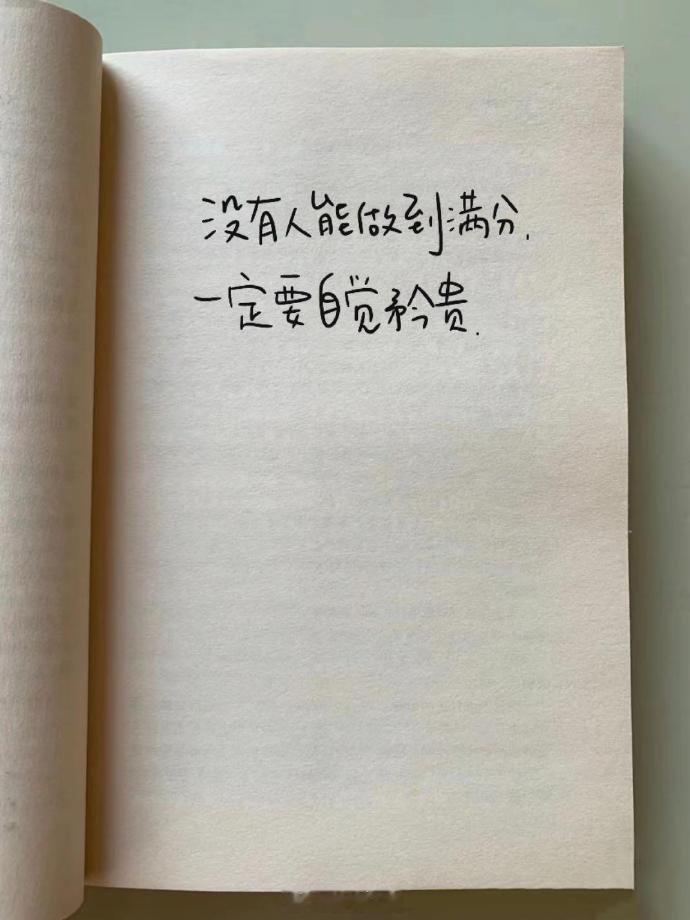 没有人能做到满分.
一定要自觉矜贵.